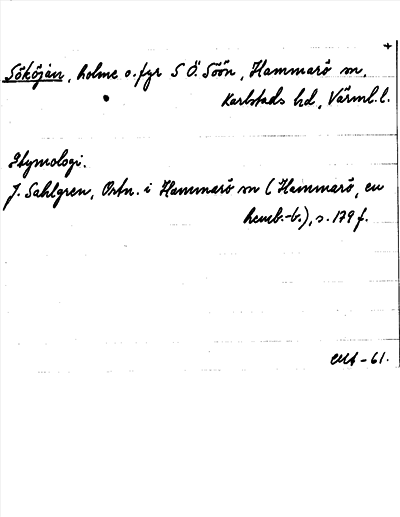 +
Sököjan, holme o. fyr S Ö. Söön, Hammarö sn,
Karlstads hd, Värml. l.
Etymologi.
J. Sahlgren, Ortn. i Hammarö sn (Hammarö, en
hemb.-b.), s. 179 f.
-61.